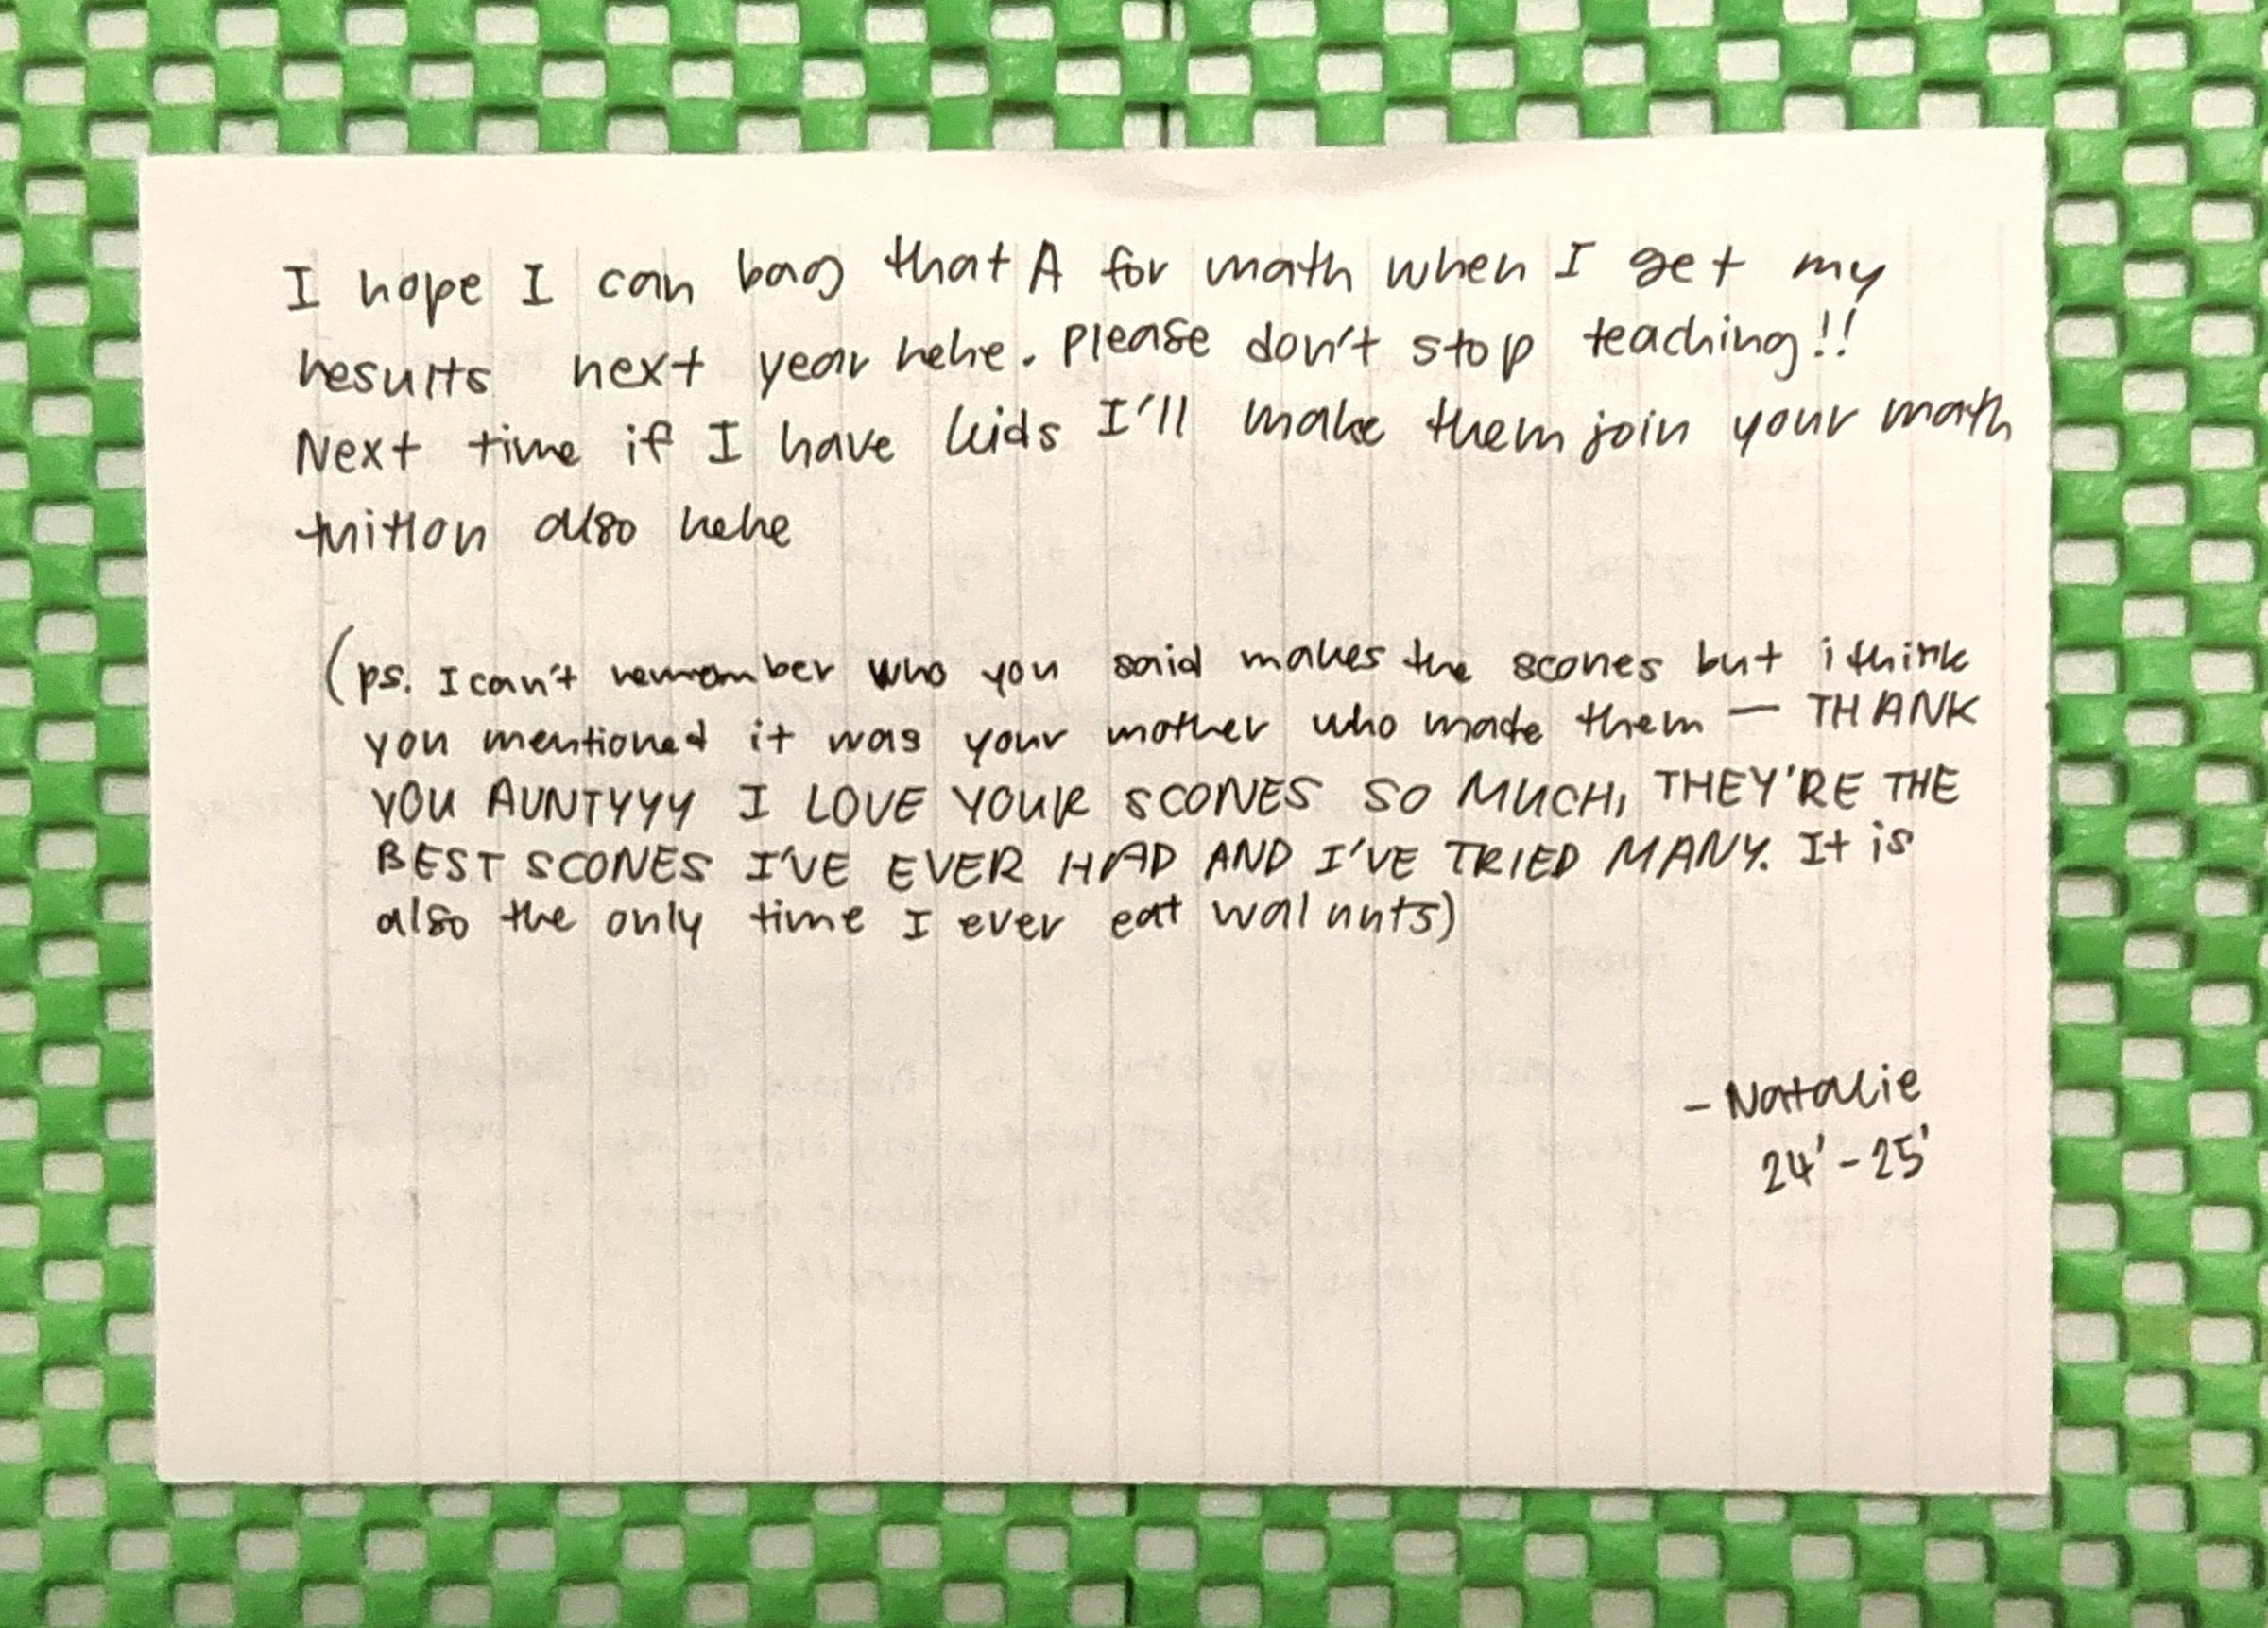 I hope I can bag that A for math when I get my
results next year hehe. Please don't stop teaching!!
Next time if I have kids I'll make them join your math
tuition also hehe
(ps. I can't remember who you said makes the scones but i think
you mentioned it was your mother who made them — THANK
YOU AUNTYYY I LOVE YOUR SCONES SO MUCH, THEY'RE THE
BEST SCONES I'VE EVER HAD AND I'VE TRIED MANY. It is
also the only time I ever eat walnuts)
- Natalie
24' - 25'